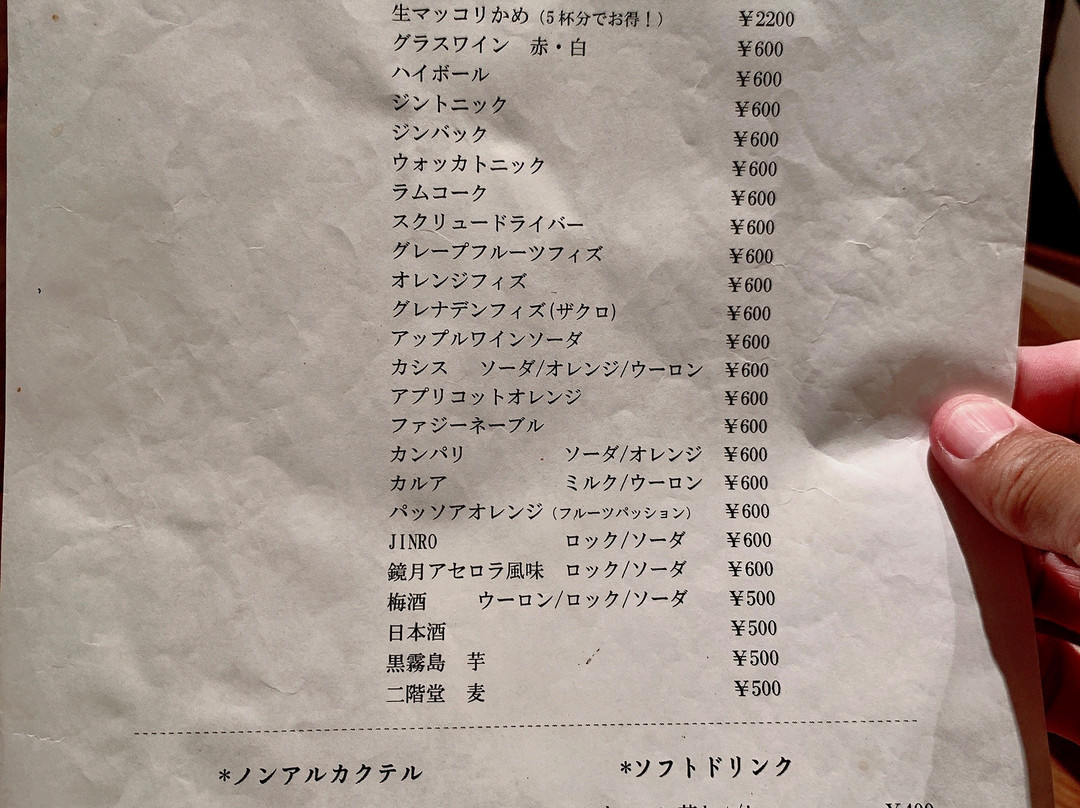 生マッコリかめ（5杯分でお得！） ￥2200
グラスワイン　赤・白 ￥600
ハイボール ￥600
ジントニック ￥600
ジンバック ￥600
ウォッカトニック ￥600
ラムコーク ￥600
スクリュードライバー ￥600
グレープフルーツフィズ ￥600
オレンジフィズ ￥600
グレナデンフィズ(ザクロ) ￥600
アップルワインソーダ ￥600
カシス　ソーダ/オレンジ/ウーロン ￥600
アプリコットオレンジ ￥600
ファジーネーブル ￥600
カンパリ　ソーダ/オレンジ ￥600
カルア　ミルク/ウーロン ￥600
パッソアオレンジ（フルーツパッション） ￥600
JINRO　ロック/ソーダ ￥600
鏡月アセロラ風味　ロック/ソーダ ￥600
梅酒　ウーロン/ロック/ソーダ ￥500
日本酒 ￥500
黒霧島　芋 ￥500
二階堂　麦 ￥500
*ノンアルカクテル　*ソフトドリンク